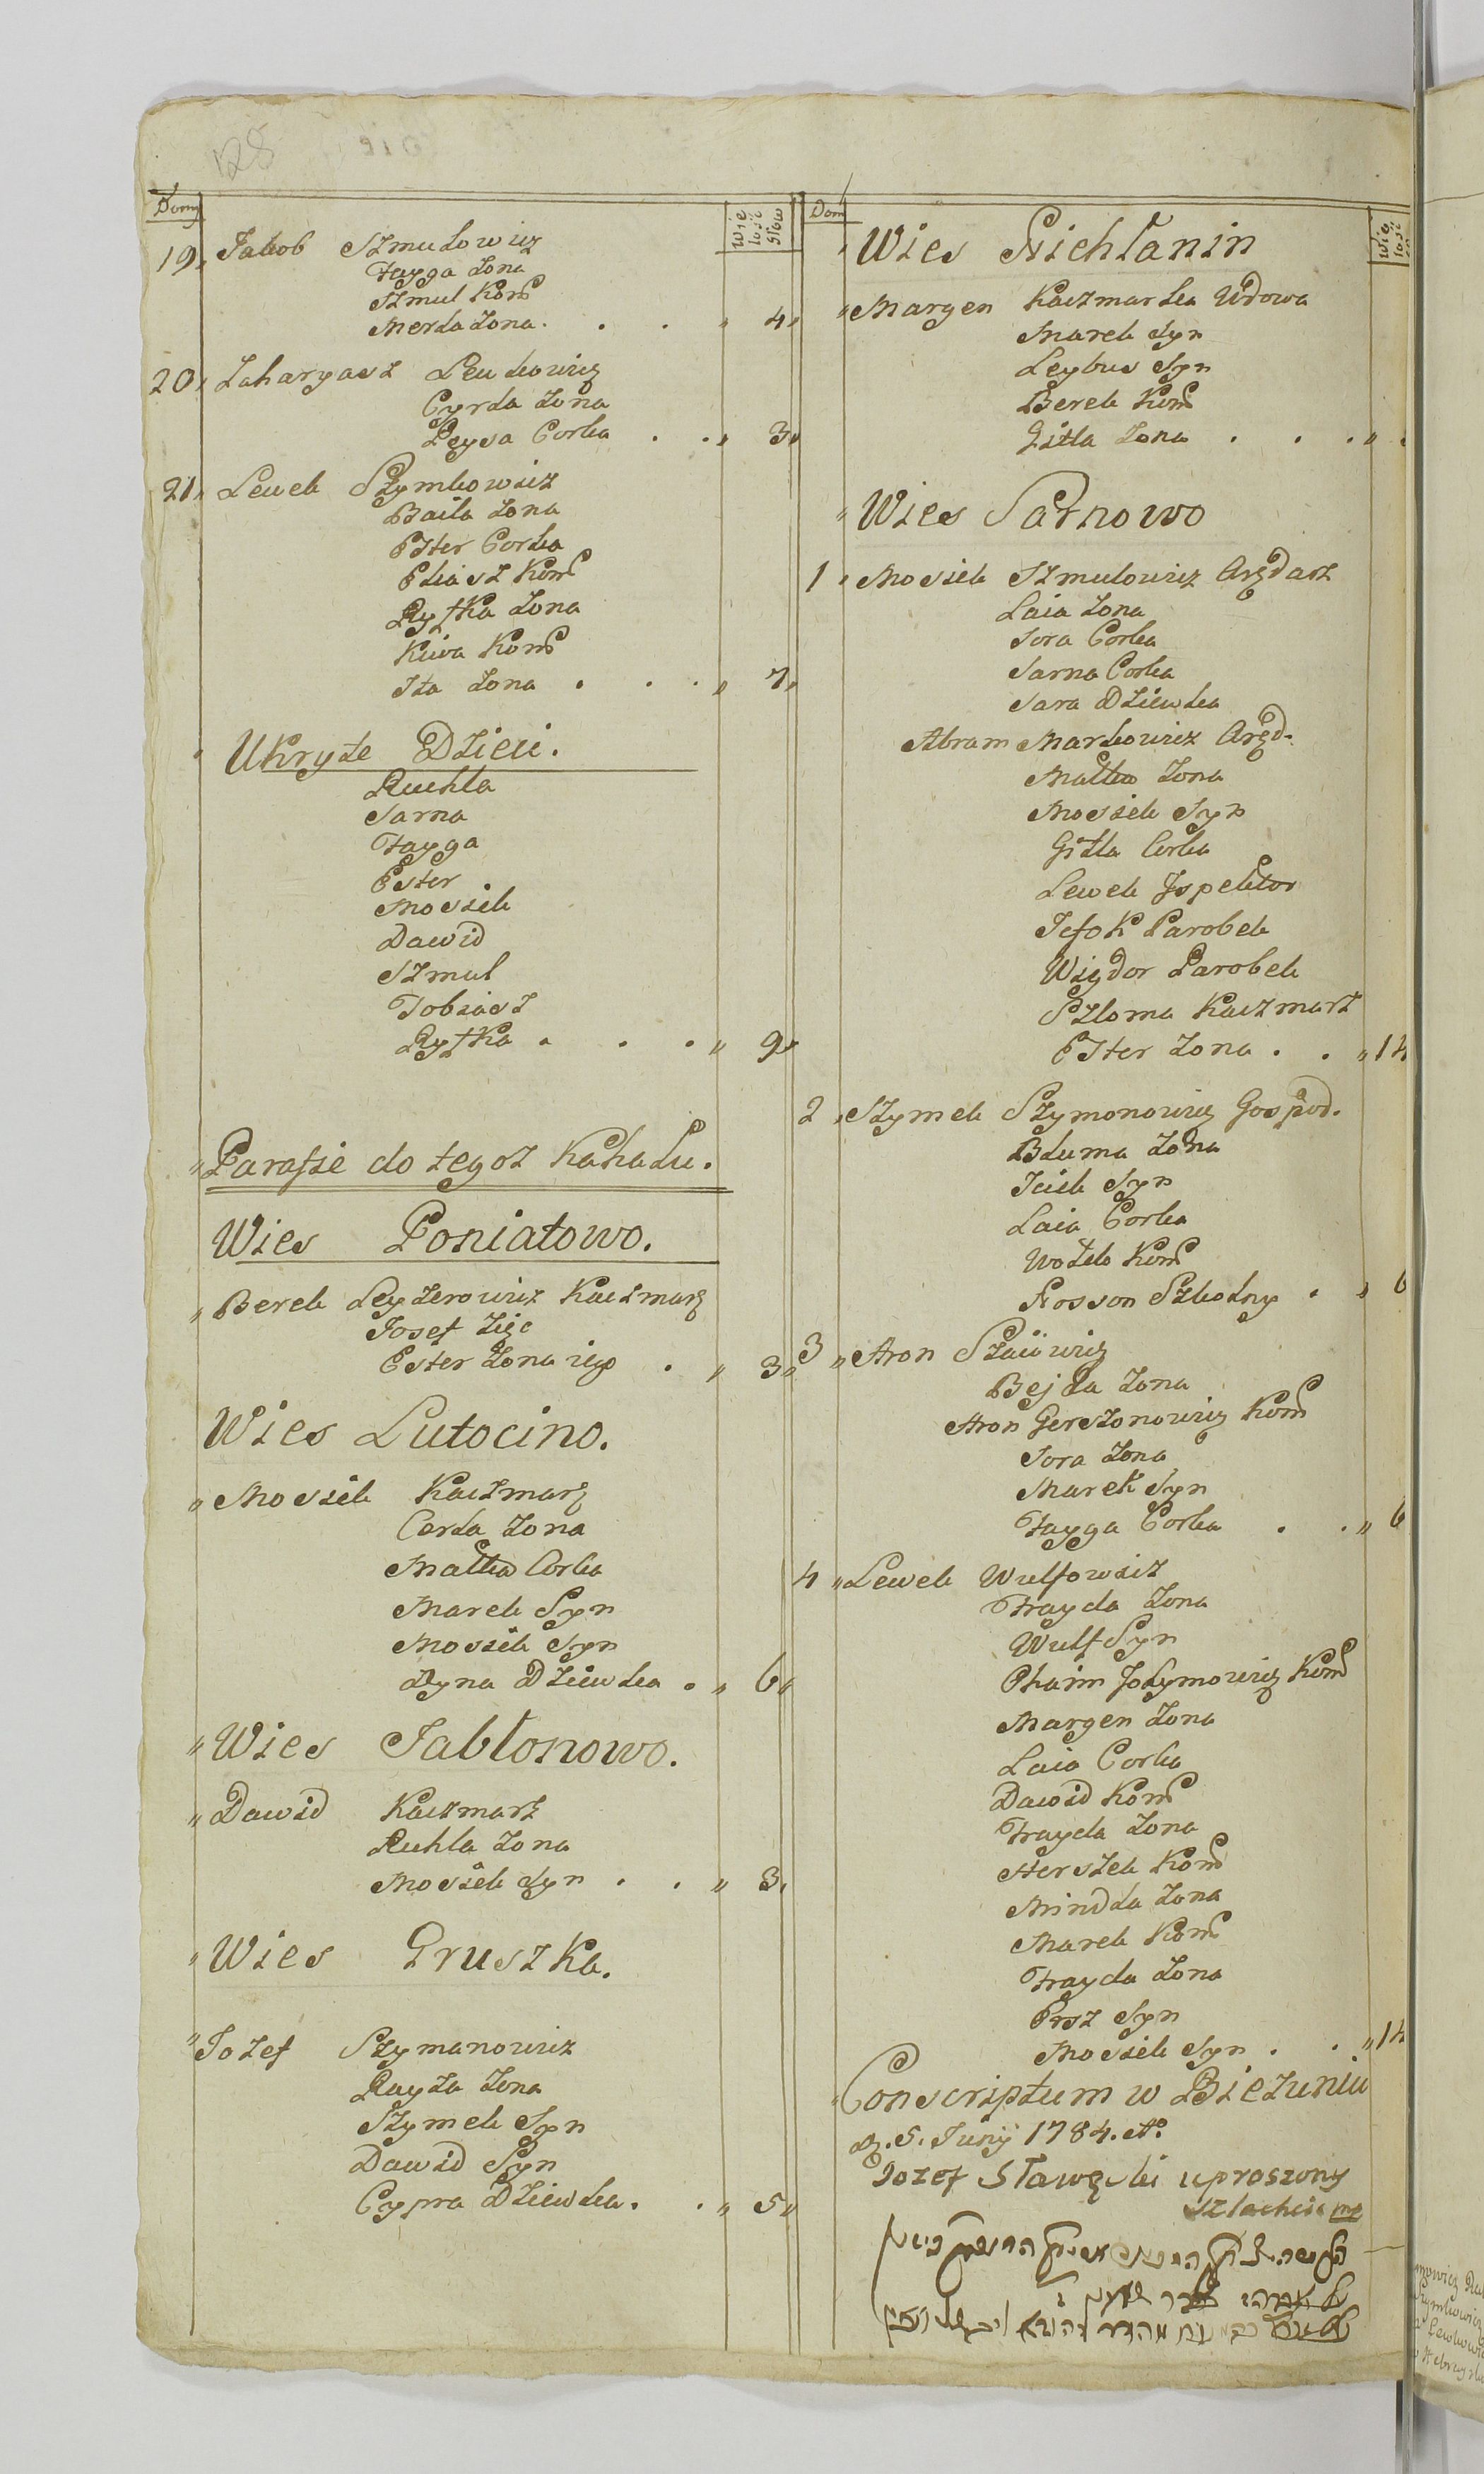 128
Domy
Wie
lość
głow
19 Jakob Szmulowicz
Fayga Zona
Szmul Kom
Merla Zona . . . " 4"
20 Zaharyasz Lewkowicz
Cyrla Zona
Leysa Corka . . " 3"
21 Lewek Szymkowicz
Baila Zona
Ester Corka
Eliasz Kom
Ryfka Zona
Kiwa Kom
Ita Zona . . . " 7"
Ukryte Dzieci.
Ruchla
Sarna
Fayga
Ester
Mosiek
Dawid
Szmul
Tobiasz
Ryfka . . . " 9"
"Parafie do tegoz Kahału.
Wies Poniatowo.
"Berek Leyzerowicz Kaczmarz
Josef Zięc
Ester Zona iego . " 3"
Wies Lutocino.
"Mosiek Kaczmarz
Cerla Zona
Malka Corka
Marek Syn
Mosiek Syn
Dyna Dziewka . " 6"
"Wies Jabłonowo.
"Dawid Kaczmarz
Ruhla Zona
Mosiek Syn . . " 3"
"Wies Gruszka.
"Jozef Szymanowicz
Rayza Zona
Szymek Syn
Dawid Syn
Cypra Dziewka . . " 5"
Dom
Wie
lość
Wies
"Margen Kaczmarka Wdowa
Marek Syn
Leybus Syn
Berek Kom
Gitla Zona . . . "
"Wies Sarnowo
1 "Mosiek Szmulowicz Arędarz
Laia Zona
Sora Corka
Sarna Corka
Sara Dziewka
Abram Markowicz Aręd.
Malka Zona
Mosiek Syn
Gitla Corka
Lewek Jspektor
Jefok Parobek
Wigdor Parobek
Szloma Kaczmarz
Ester Zona . . " 14
2 "Szymek Szymonowicz Gospod.
Bluma Zona
Icik Syn
Laia Corka
Wolek Kom
Szkolny . " 6
3 "Aron
Bejla Zona
Aron Gerszonowicz Kom
Sora Zona
Marek Syn
Fayga Corka . . " 6
4 "Lewek Wulfowicz
Frayda Zona
Wulf Syn
Chaim Kom
Margen Zona
Laia Corka
Dawid Kom
Frayda Zona
Herszek Kom
Mindla Zona
Marek Kom
Frayda Zona
Syn
Mosiek Syn . . " 14
Conscriptum w Biezuniu
d. 5. Junij 1784. Ao
Jozef Sławęcki uproszony
Szlachcic mp